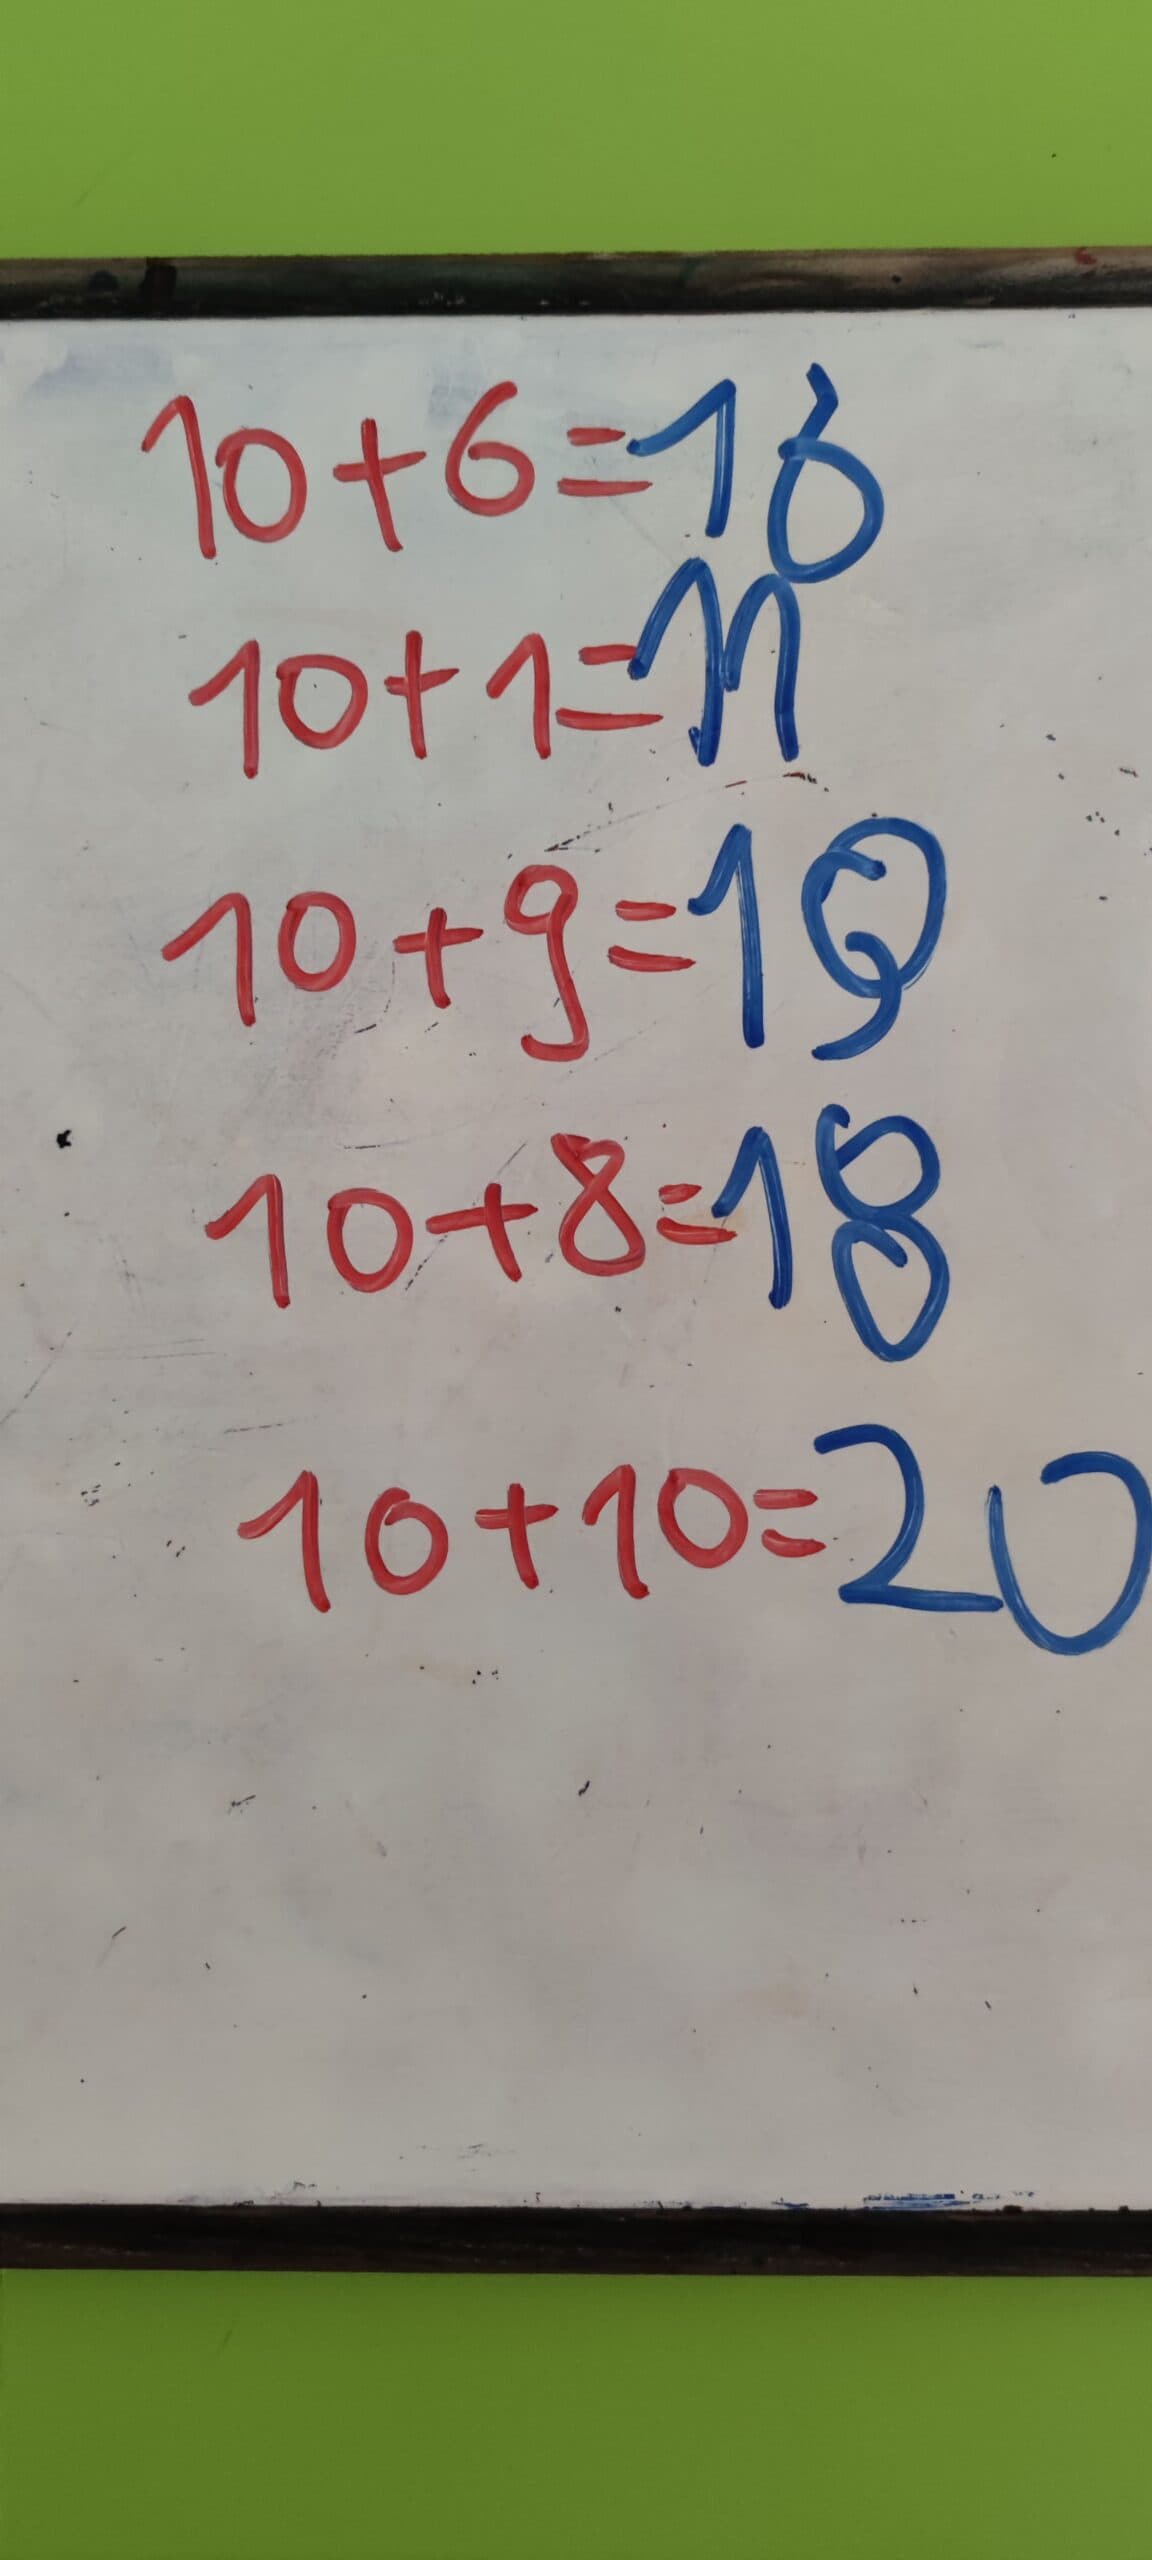 10+6=16
10+1=11
10+9=19
10+8=18
10+10=20